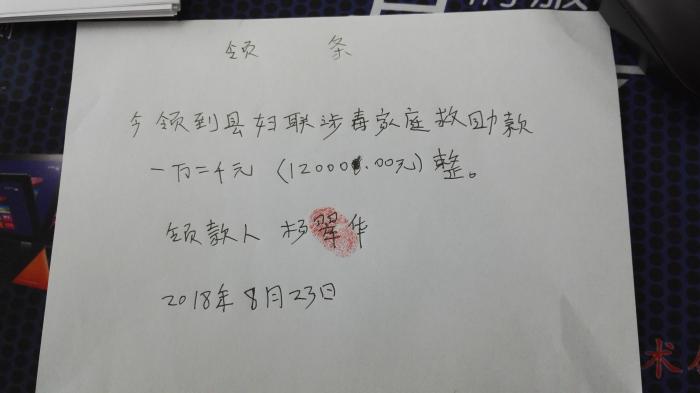 领 条
今领到县妇联涉毒家庭救助款
一万二千元（12000.00元）整。
领款人 杨翠华
2018年8月23日
术